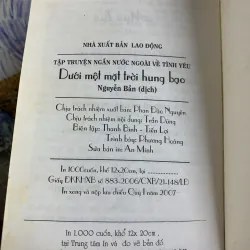 NHÀ XUẤT BẢN LAO ĐỘNG
TẬP TRUYỆN NGẮN NƯỚC NGOÀI VỀ TÌNH YÊU
Dưới một mặt trời hung bạo
Nguyễn Bản (dịch)
Chịu trách nhiệm xuất bản: Phan Đào Nguyên
Chịu trách nhiệm nội dung: Trần Dũng
Biên tập: Thanh Bình - Tiến Lợi
Trình bày: Phương Hoàng
Sửa bản in: An Minh
In 1000cuốn, khổ 12x20cm, tại
Giấy ĐKKHXB số 883-2006/CXB/21-148/LĐ
In xong và nộp lưu chiểu Quý I năm 2007
In 1.000 cuốn, khổ 12x 20cm,
tại Trung tâm in và đo vẽ bản đồ.